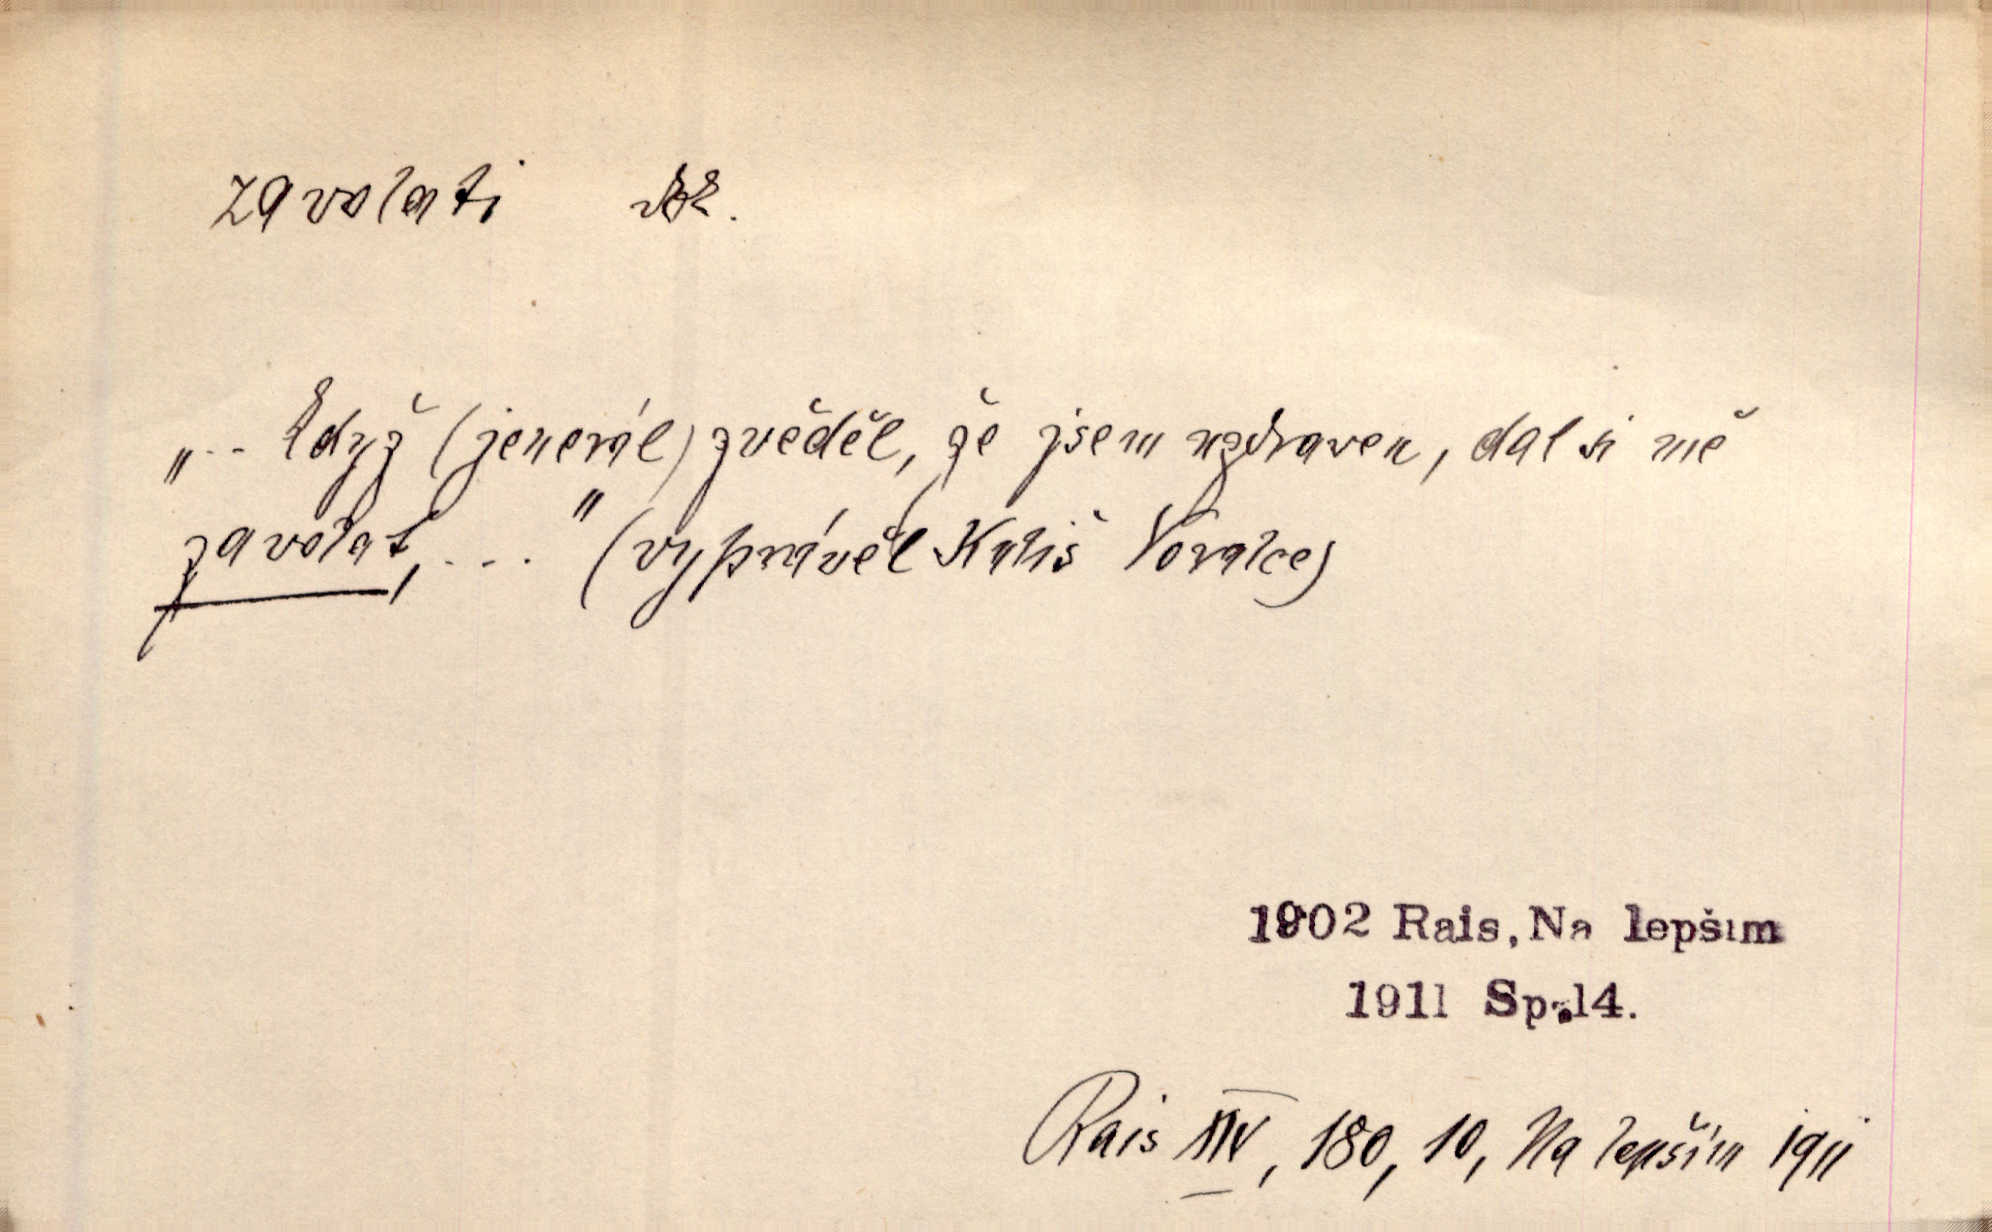 zavolati dok.
„.. Když (jenerál) zvěděl, že jsem uzdraven, dal si mě
zavolat, ... " (vyprávěl Kuliš
1902 Rais, Na lepším
1911 Sp.14.
Rais XIV, 180, 10, Na lepším 1911